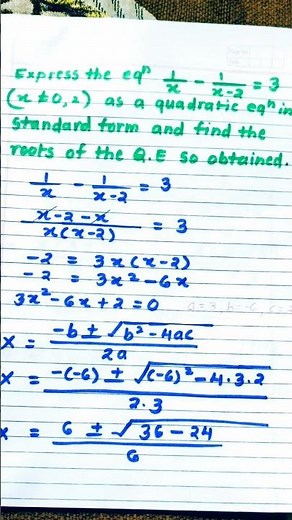 Express the eqⁿ 1/x - 1/x-2 = 3
(x ≠ 0, 2) as a quadratic eqⁿ in
standard form and find the
roots of the Q.E so obtained.
1/x - 1/x-2 = 3
x-2-x/x(x-2) = 3
-2 = 3x(x-2)
-2 = 3x²-6x
3x²-6x+2=0
x = -b±√b²-4ac/2a
x = -(-6) ± √(-6)²-4.3.2/2.3
x = 6 ± √36-24/6